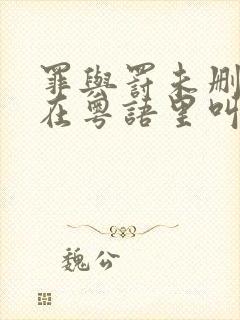 罪與罰未删
在粵語里叫
魏公